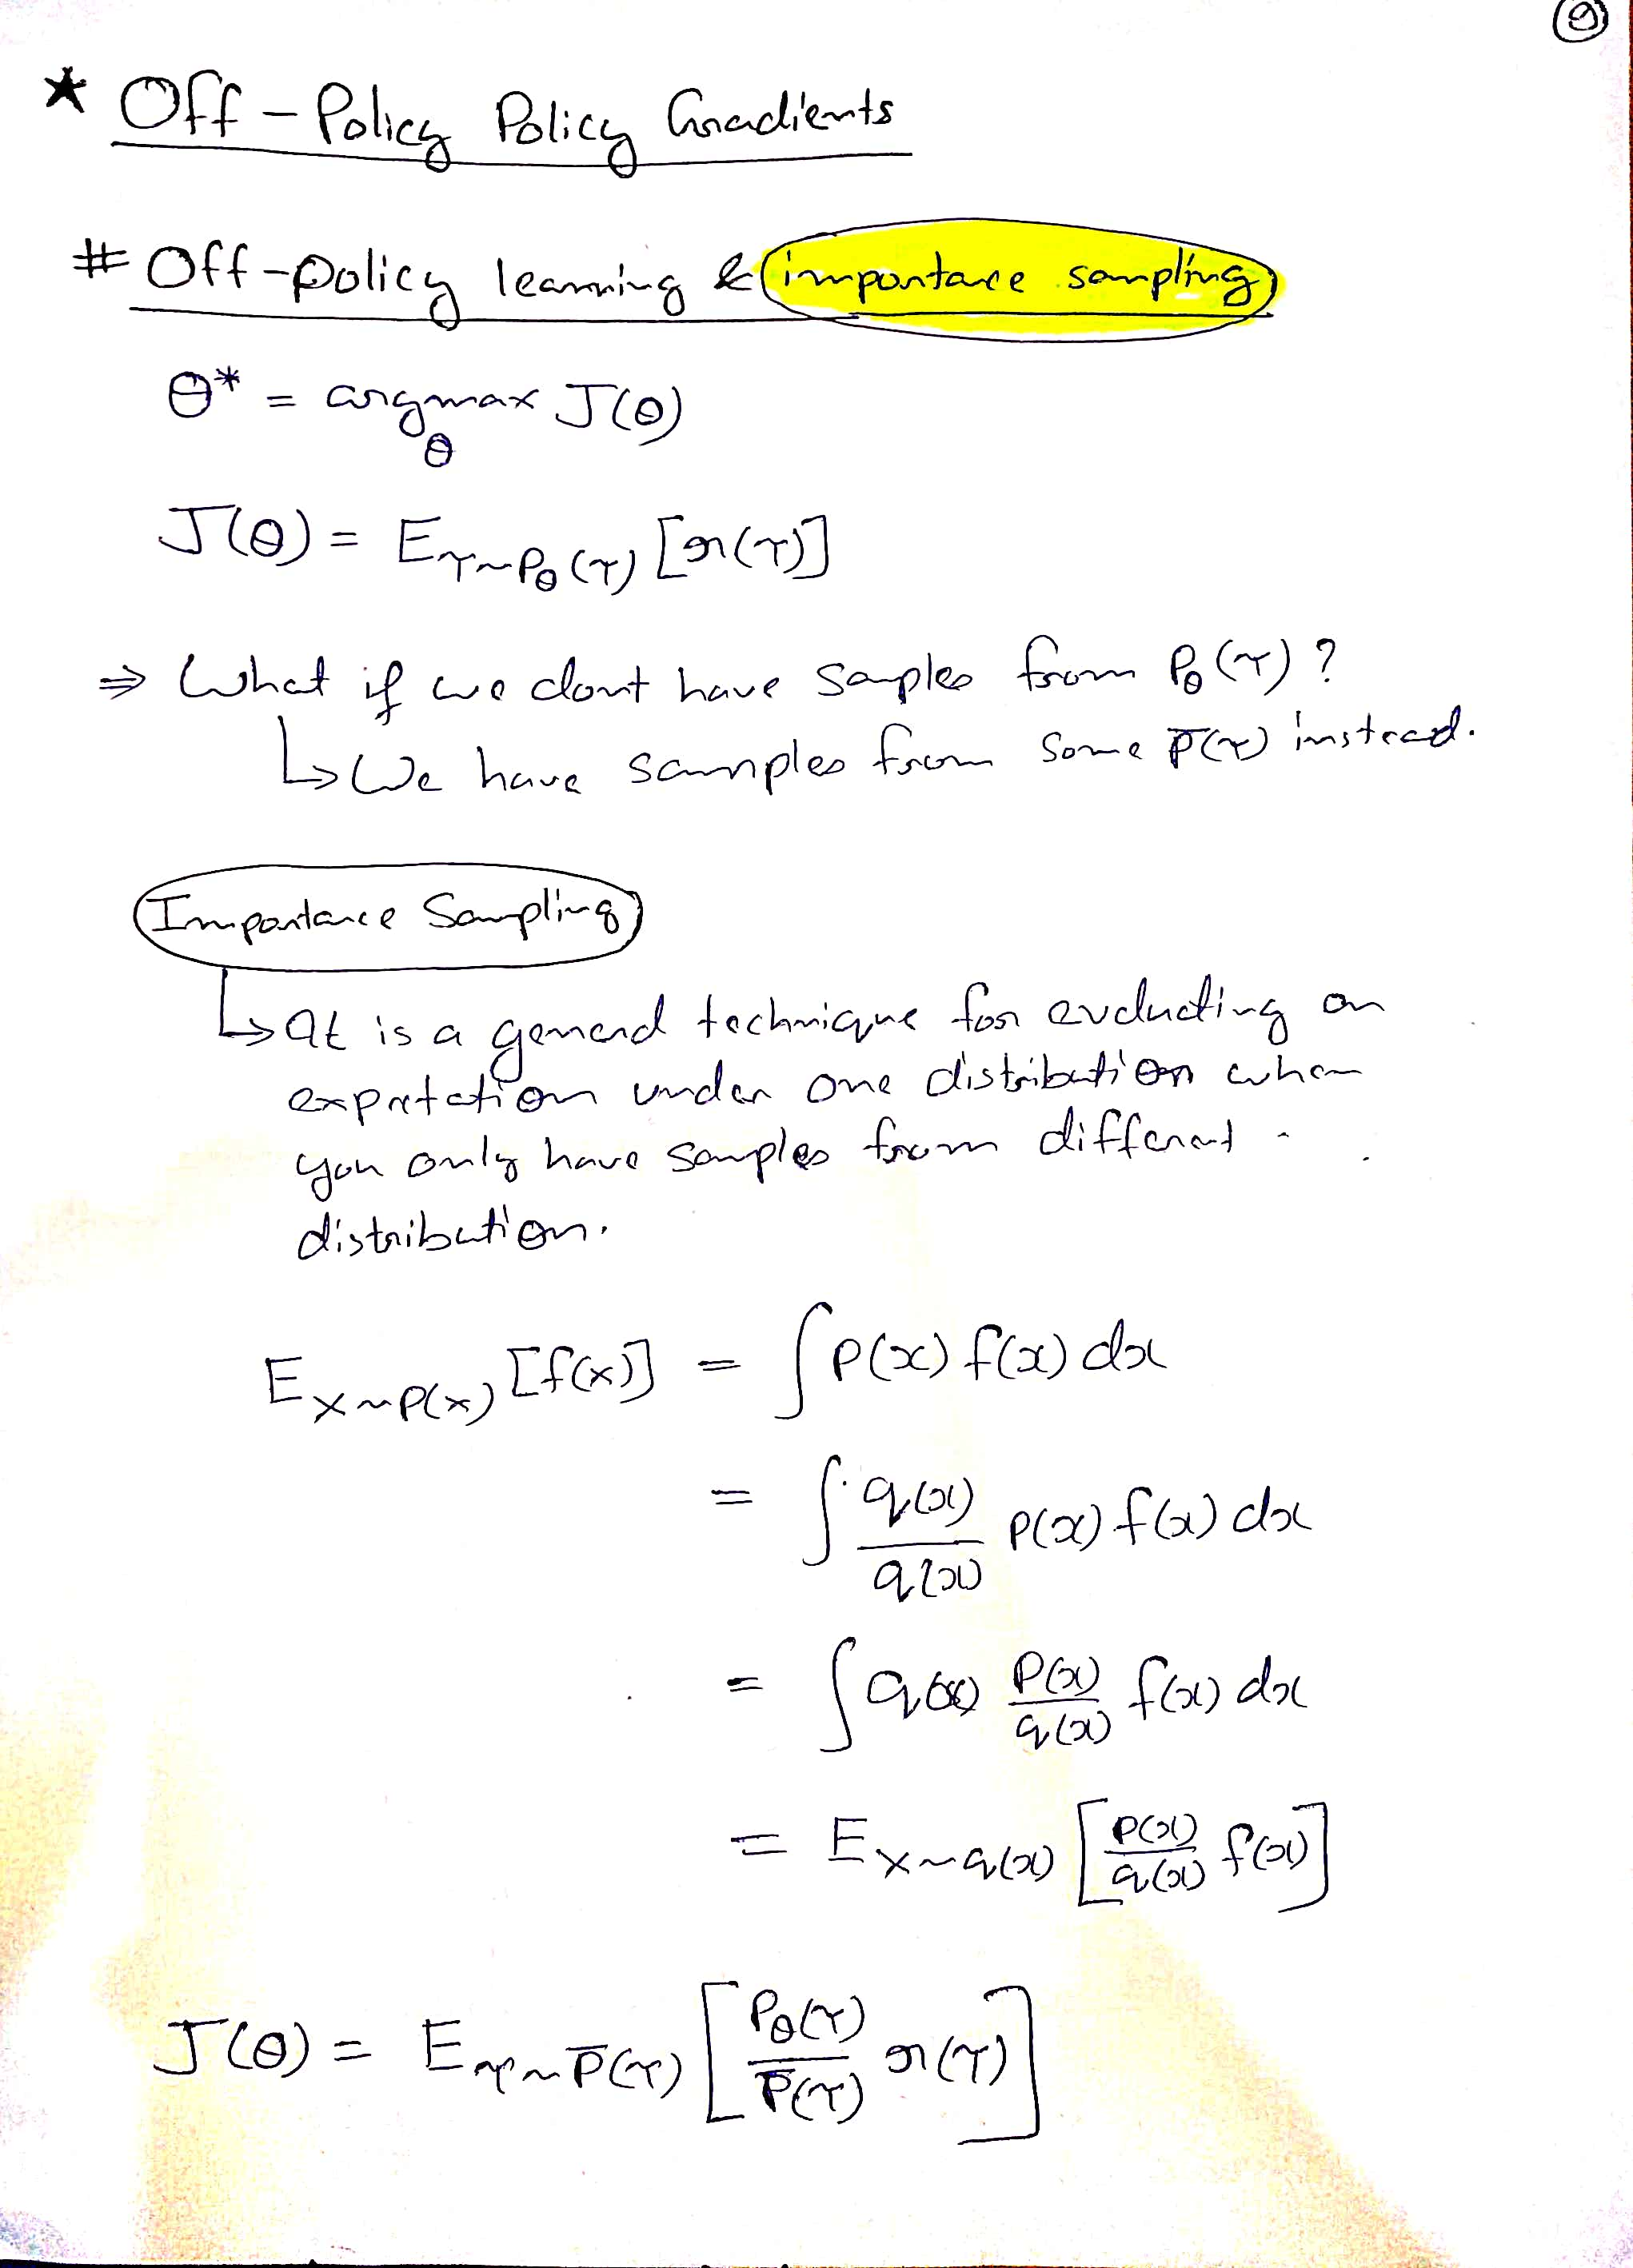 9
* Off-Policy Policy Gradients
# Off-policy learning & importance sampling
θ* = argmax J(θ)
θ
J(θ) = E τ~Pθ(τ) [r(τ)]
⇒ What if we dont have samples from Pθ(τ) ?
↳ We have samples from some P̄(τ) instead.
Importance Sampling
↳ It is a general technique for evaluating an
expectation under one distribution when
you only have samples from different
distribution.
E x~P(x) [f(x)] = ∫ P(x) f(x) dx
= ∫ q(x)/q(x) P(x) f(x) dx
= ∫ q(x) P(x)/q(x) f(x) dx
= E x~q(x) [P(x)/q(x) f(x)]
J(θ) = E τ~P̄(τ) [Pθ(τ)/P̄(τ) r(τ)]